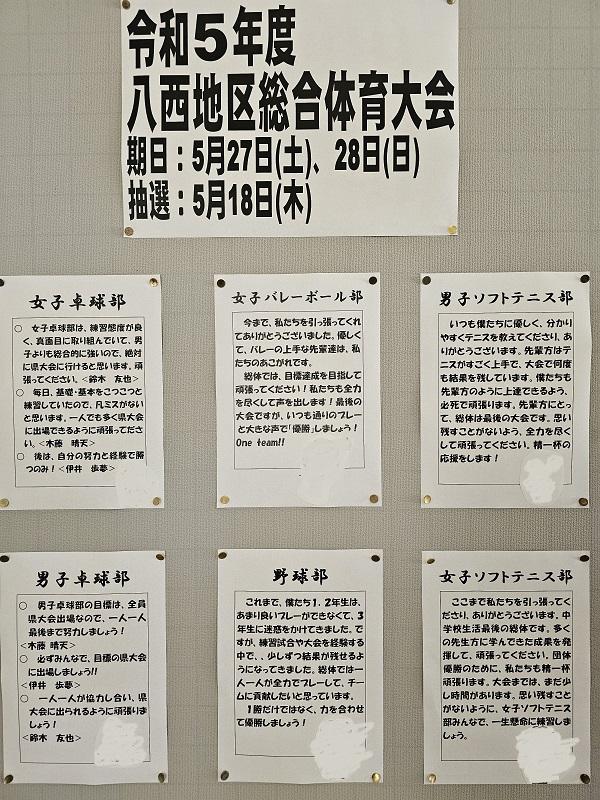 令和5年度
八西地区総合体育大会
期日：5月27日(土)、28日(日)
抽選：5月18日(木)
女子卓球部
○　女子卓球部は、練習態度が良
く、真面目に取り組んでいて、男
子よりも総合的に強いので、絶対
に県大会に行けると思います。頑
張ってください。<鈴木　友也>
○　毎日、基礎・基本をこつこつと
練習していたので、凡ミスがない
と思います。一人でも多く県大会
に出場できるように頑張ってださ
い。<木藤　晴天>
○　後は、自分の努力と経験で勝
つのみ！<伊井　歩夢>
女子バレーボール部
今まで、私たちを引っ張ってくれ
てありがとうございました。優しく
て、バレーの上手な先輩達は、私
たちのあこがれです。
総体では、目標達成を目指して
頑張ってください！私たちも全力
を尽くして声を出します！最後の
大会ですが、いつも通りのプレー
と大きな声で「優勝」しましょう！
One team!!
男子ソフトテニス部
いつも僕たちに優しく、分かり
やすくテニスを教えてくださり、あ
りがとうございます。先輩方はテ
ニスがすごく上手で、大会で何度
も結果を残しています。僕たちも
先輩方のように上達できるよう、
必死で頑張ります。先輩方にとっ
て、総体は最後の大会です。思い
残すことがないよう、全力を尽く
して頑張ってください。精一杯の
応援をします！
男子卓球部
○　男子卓球部の目標は、全員
県大会出場なので、一人一人
最後まで努力しましょう！
<木藤　晴天>
○　必ずみんなで、目標の県大会
に出場しましょう!!
<伊井　歩夢>
○　一人一人が協力し合い、県
大会に出られるように頑張りま
しょう！
<鈴木　友也>
野球部
これまで、僕たち1．2年生は、
あまり良いプレーができなくて、3
年生に迷惑をかけてきました。で
すが、練習試合や大会を経験する
中で、、少しずつ結果が残せるよ
うになってきました。総体では一
人一人が全力でプレーして、チー
ムに貢献したいと思っています。
1勝だけではなく、力を合わせ
て優勝しましょう！
女子ソフトテニス部
ここまで私たちを引っ張ってく
ださり、ありがとうございます。中
学校生活最後の総体です。多く
の先生方に学んできた成果を発
揮して、頑張ってください。団体
優勝のために、私たちも精一杯
頑張ります。大会までは、まだ少
し時間があります。思い残すこと
がないように、女子ソフトテニス
部みんなで、一生懸命に練習しま
しょう。